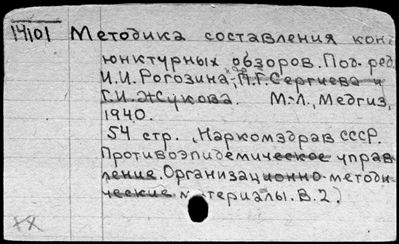 14101 Методика составления конъ
юнктурных обзоров. Под. ред.
И.И. Рогозина, П.Г. Сергиева и
Г.И. Жукова. М.-Л., Медгиз,
1940.
54 стр. (Наркомздрав СССР.
Противоэпидемическое управ
ление. Организационно-методи
ческие материалы. В.2)